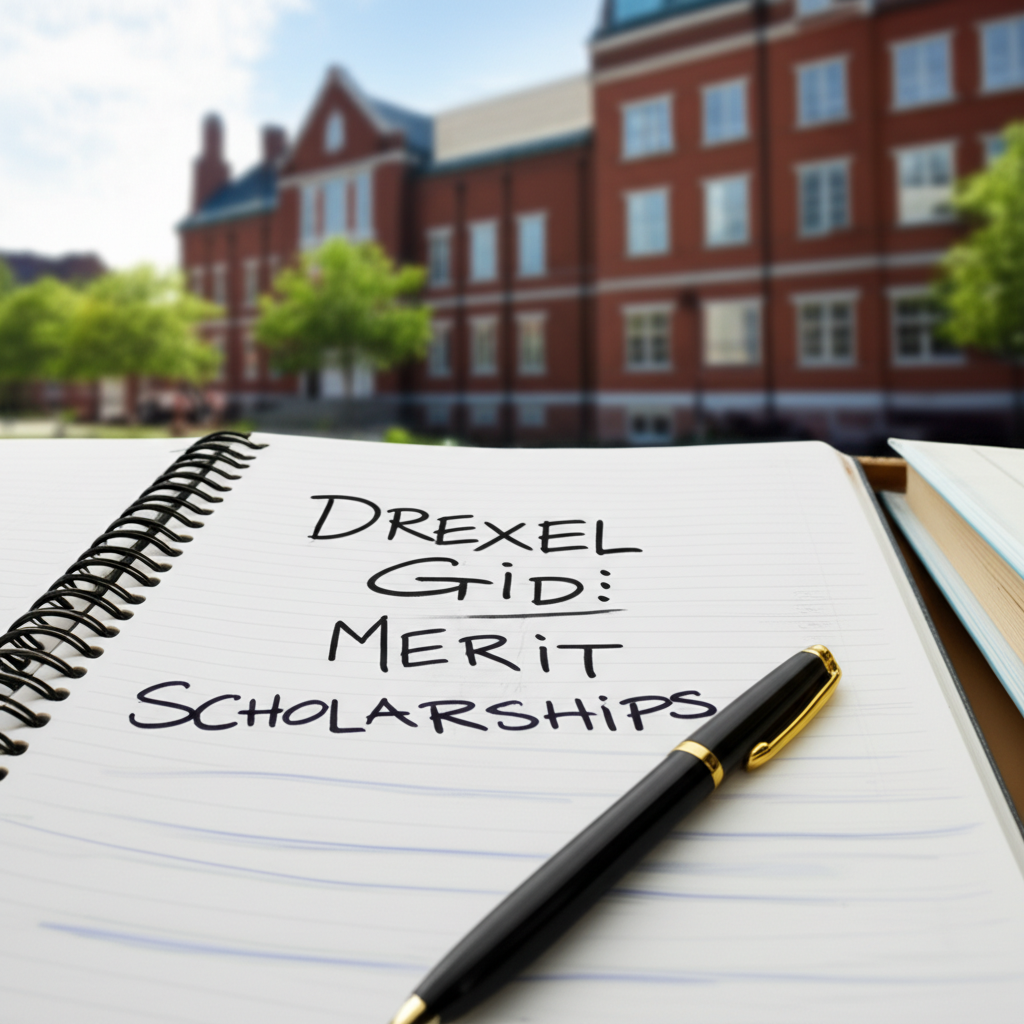 DREXEL
GiD:
MERiT
SCHOLARSHiPS